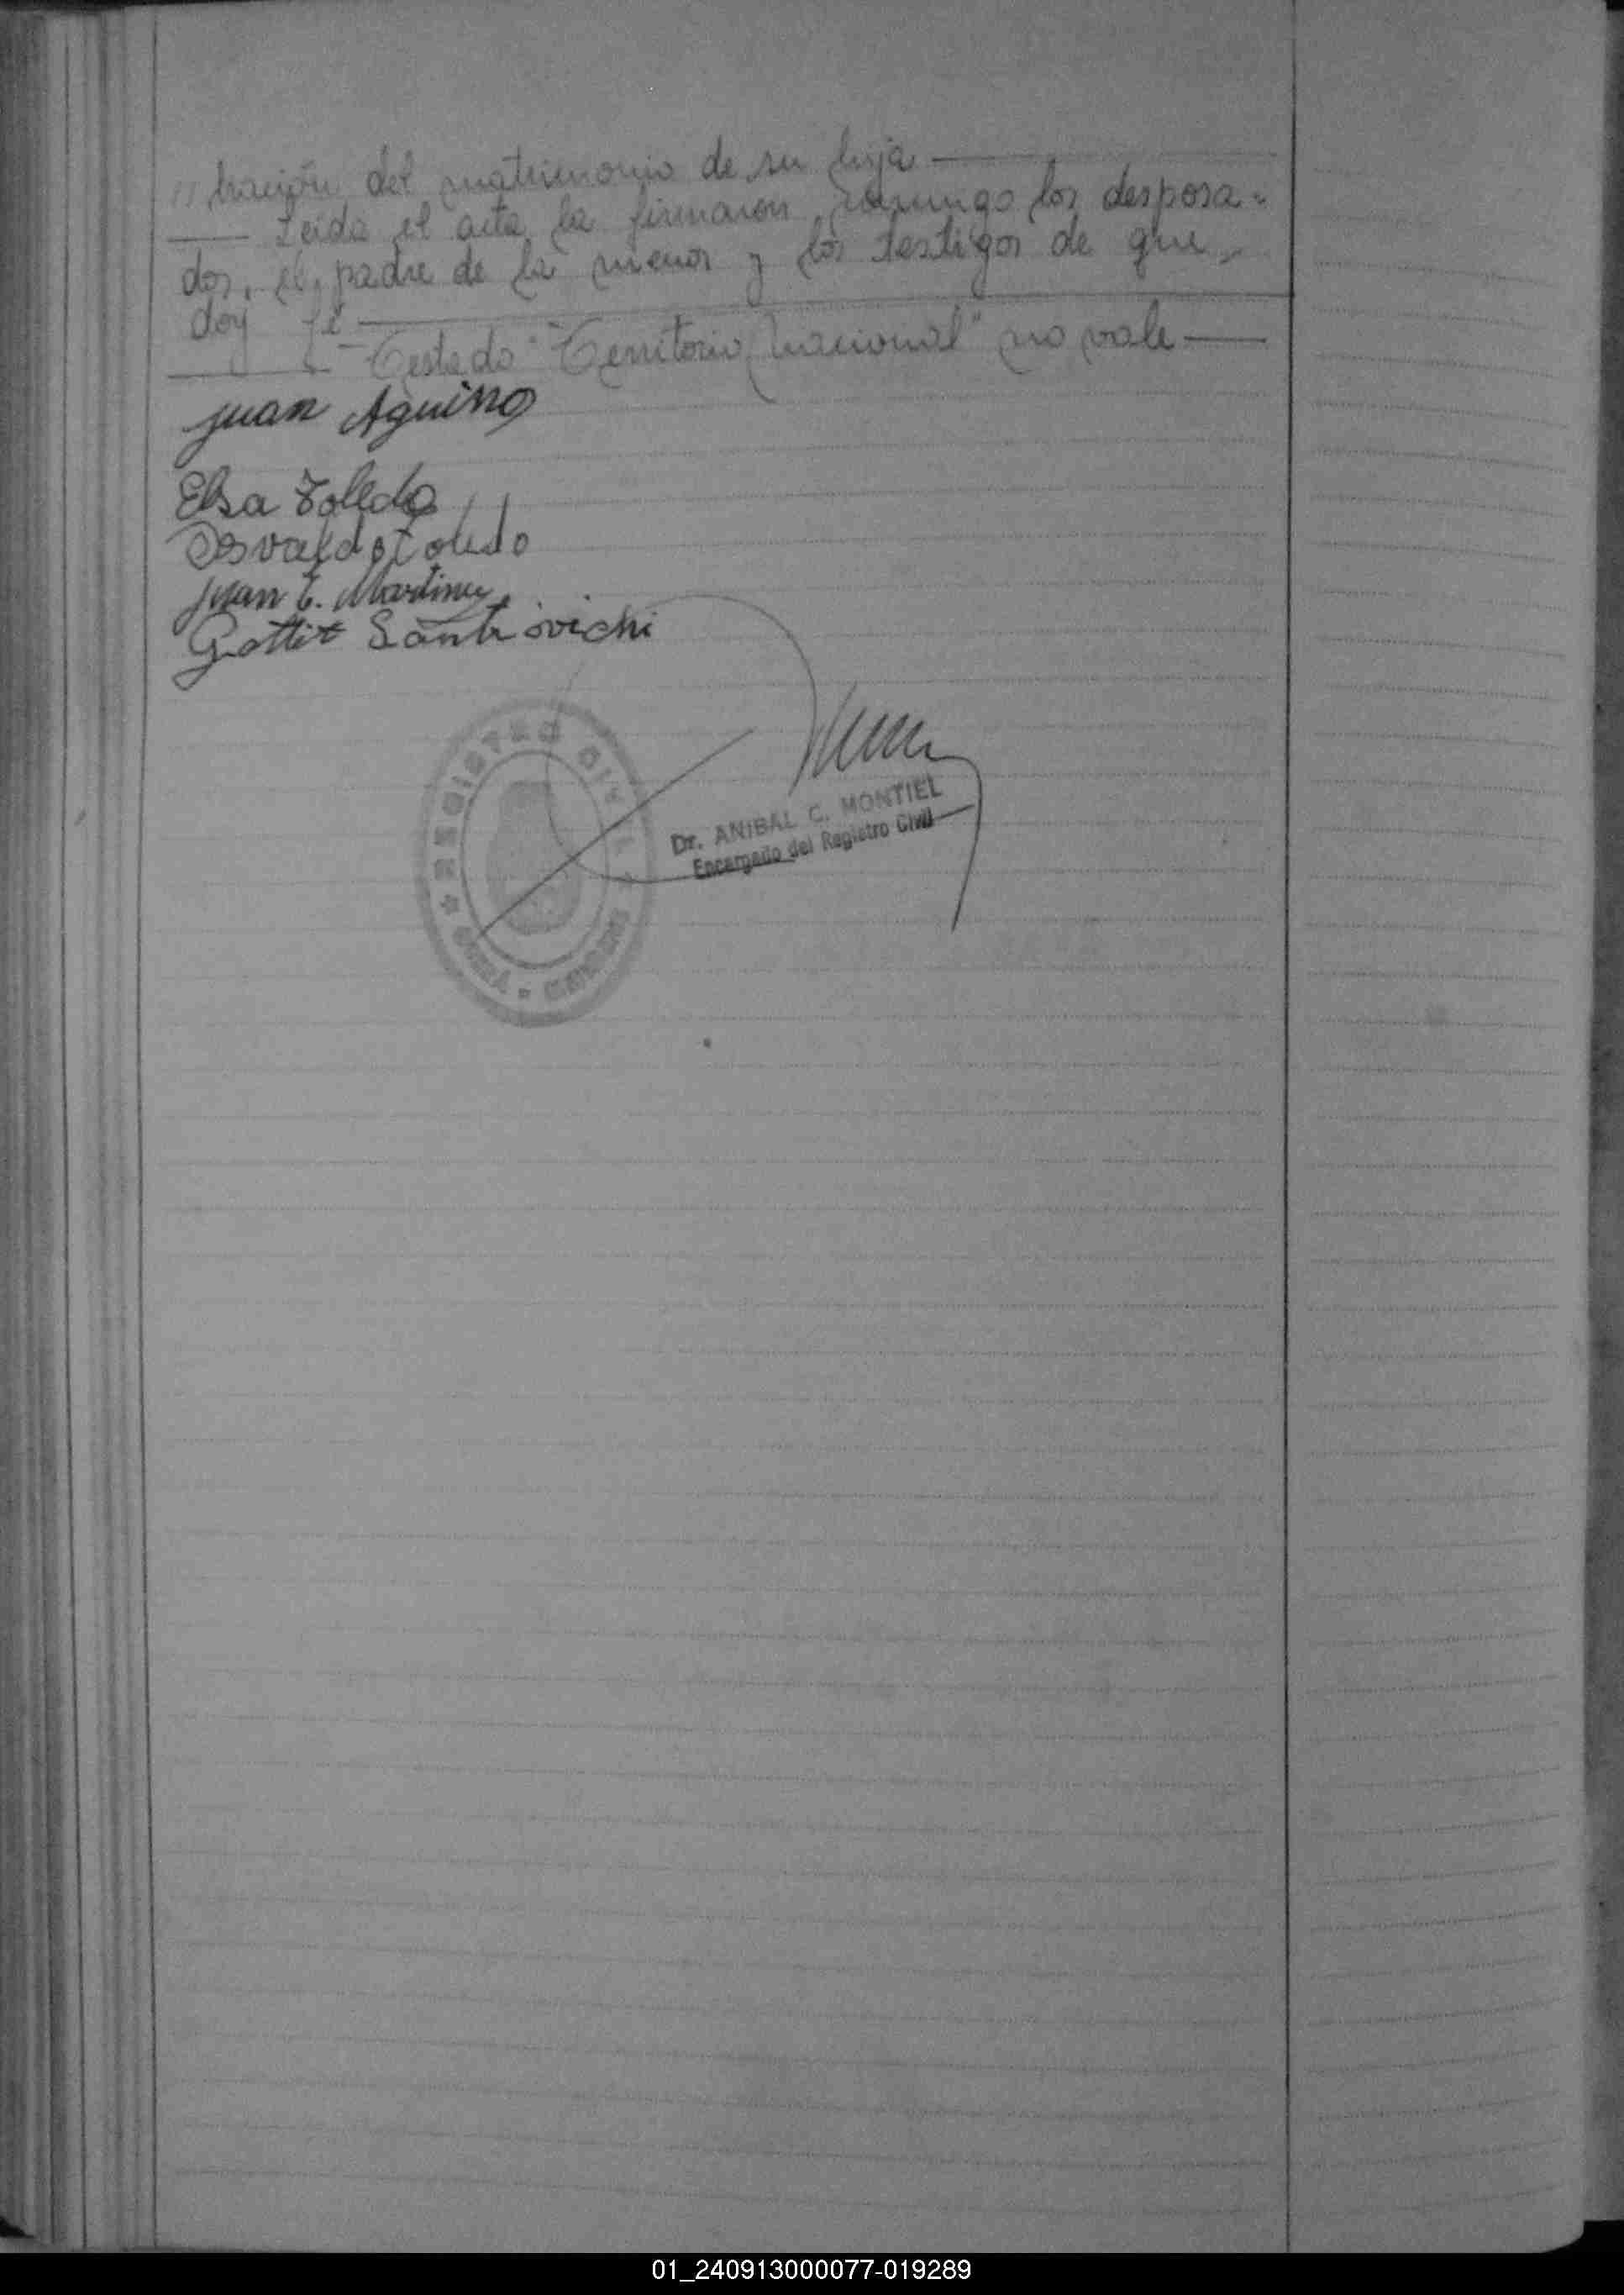 "bración del matrimonio de su hija
Leída el acta la firmaron conmigo los desposa-
dos, el padre de la menor y los testigos de que
doy fé
Testado "Territorio Nacional" no vale
Juan Aquino
Elsa Toledo
Osvaldo Toledo
Juan E. Martinez
Gottit Santrovichi
REGISTRO CIVIL
Dr. ANIBAL C. MONTIEL
Encargado del Registro Civil
01_240913000077-019289